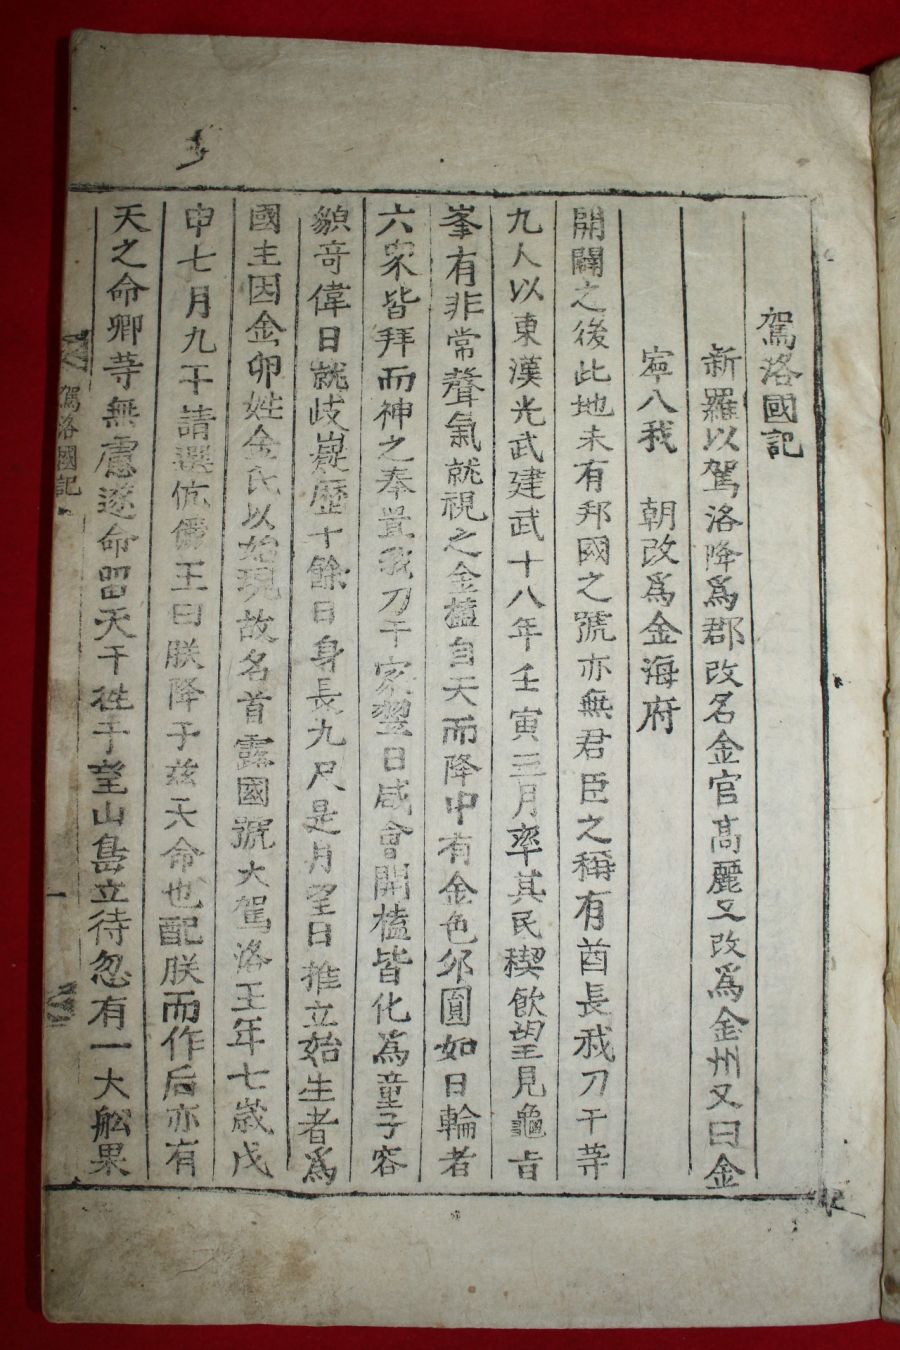 駕洛國記
新羅以駕洛降爲郡改名金官高麗又改爲金州又曰金
寧入我　朝改爲金海府
開闢之後此地未有邦國之號亦無君臣之稱有酋長我刀干等
九人以東漢光武建武十八年壬寅三月率其民禊飮望見龜旨
峯有非常聲氣就視之金榼自天而降中有金色卵圓如日輪者
六衆皆拜而神之奉置我刀干家翌日咸會開榼皆化爲童子容
貌奇偉日就歧嶷歷十餘日身長九尺是月望日推立始生者爲
國主因金卵姓金氏以始現故名首露國號大駕洛王年七歲戊
申七月九干請選伉儷王曰朕降于玆天命也配朕而作后亦有
天之命卿等無慮遂命留天干往于望山島立待忽有一大舩果
駕洛國記
一